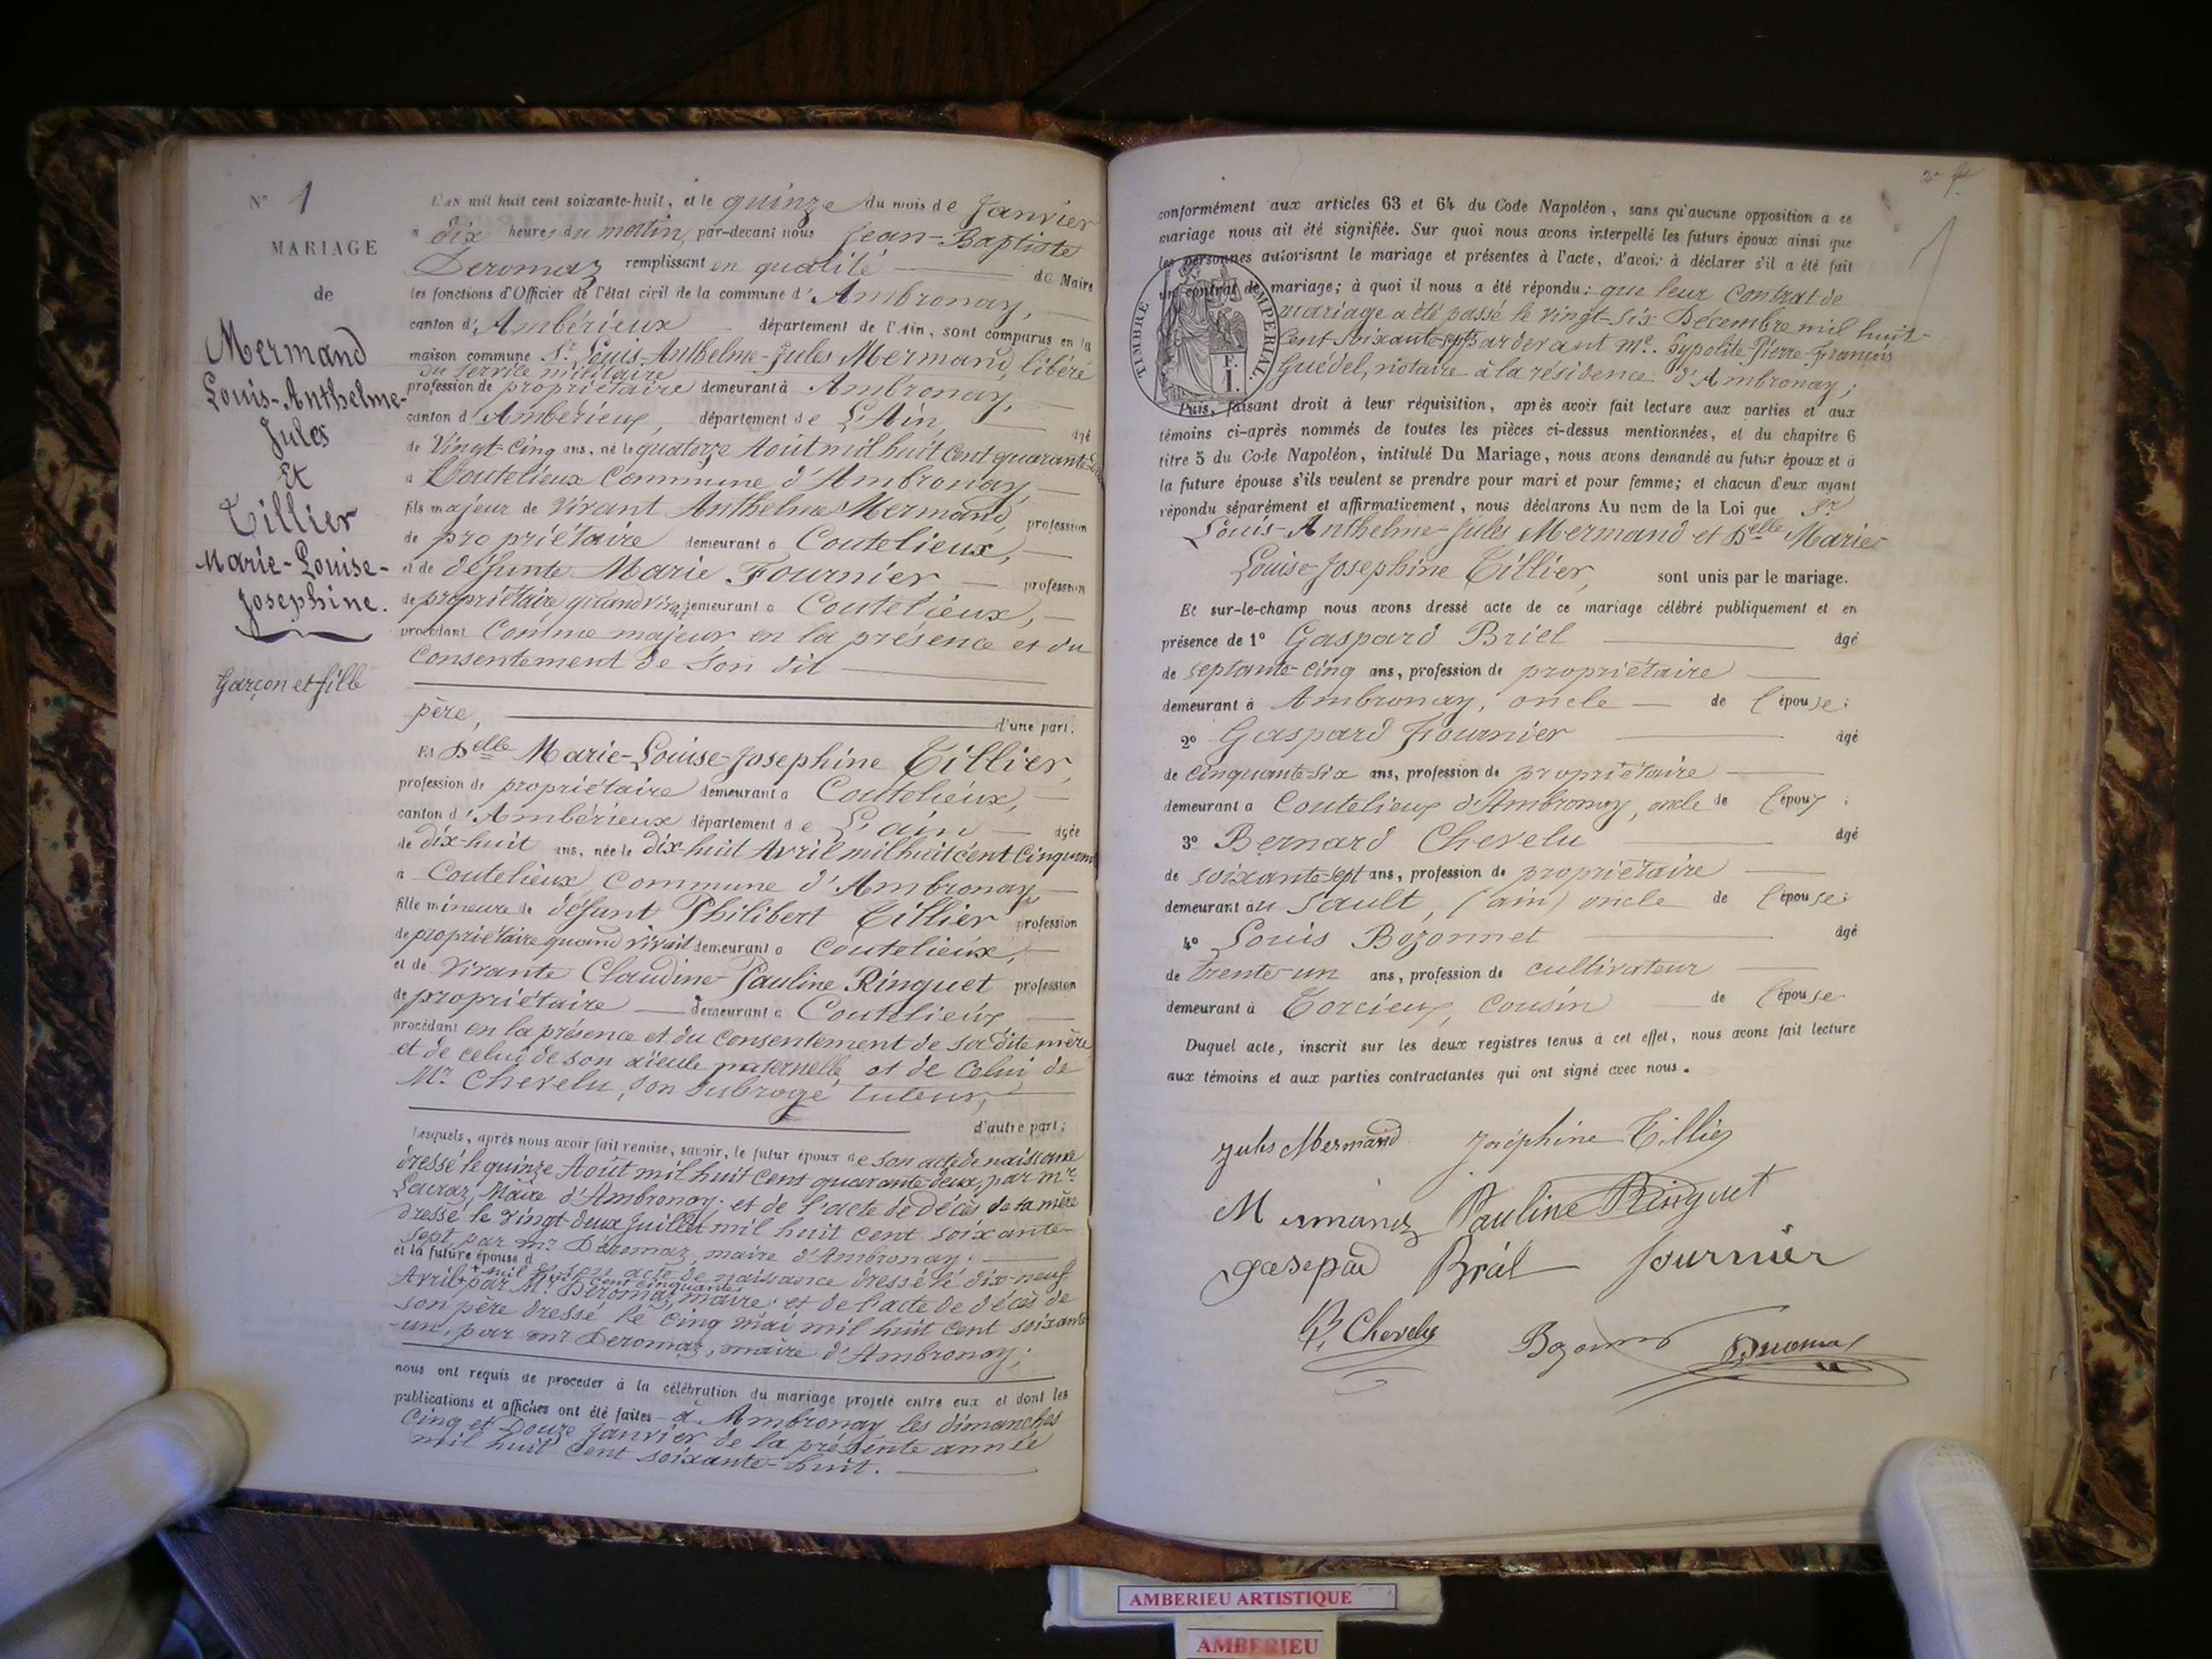 N° 1
MARIAGE
de
Mermand
Louis-Anthelme-
Jules
Et
Tillier
Marie-Louise-
Josephine.
Garçon et fille
L'an mil huit cent soixante-huit, et le quinze du mois de Janvier
à dix heures du matin, par-devant nous Jean-Baptiste
Deromaz remplissant en qualité de Maire
les fonctions d'Officier de l'état civil de la commune d'Ambronay,
canton d'Ambérieux département de l'Ain, sont comparus en la
maison commune Sr. Louis-Anthelme-Jules Mermand, libéré
du service militaire
profession de propriétaire demeurant à Ambronay,
canton d'Ambérieux, département de L'Ain, âgé
de Vingt-cinq ans, né le quatorze Août mil huit cent quarante-deux
à Coutelieux Commune d'Ambronay,
fils majeur de vivant Anthelme Mermand, profession
de propriétaire demeurant à Coutelieux,
et de défunte Marie Fournier profession
de propriétaire quand viv. demeurant à Coutelieux,
procédant comme majeur en la présence et du
consentement de son dit
père, d'une part.
Et Delle Marie-Louise-Josephine Tillier,
profession de propriétaire demeurant à Coutelieux,
canton d'Ambérieux département de L'ain âgée
de dix-huit ans, née le dix-huit Avril mil huit cent cinquante
à Coutelieux, commune d'Ambronay,
fille mineure de défunt Philibert Tillier profession
de propriétaire quand vivait demeurant à Coutelieux,
et de vivante Claudine Pauline Ringuet profession
de propriétaire demeurant à Coutelieux
procédant en la présence et du consentement de sa dite mère
et de celui de son aïeule maternelle, et de celui de
Mr. Chevelu, son subrogé tuteur,
d'autre part;
Lesquels, après nous avoir fait remise, savoir, le futur époux de son acte de naissance
dressé le quinze Août mil huit cent quarante-deux, par mr.
Lacraz, Maire d'Ambronay; et de l'acte de décès de sa mère
dressé le vingt-deux Juillet mil huit cent soixante-
sept, par mr Deromaz, maire d'Ambronay;
et la future épouse de son acte de naissance dressé le dix-neuf
+ mil huit cent cinquante
Avril + par Mr. Deromaz, maire; et de l'acte de décès de
son père dressé le cinq mai mil huit cent soixante
-un, par mr Deromaz, maire d'Ambronay;
nous ont requis de procéder à la célébration du mariage projeté entre eux et dont les
publications et affiches ont été faites à Ambronay, les dimanches
cinq et Douze Janvier de la présente année
mil huit cent soixante-huit.
conformément aux articles 63 et 64 du Code Napoléon, sans qu'aucune opposition a ce
mariage nous ait été signifiée. Sur quoi nous avons interpellé les futurs époux ainsi que
les personnes autorisant le mariage et présentes à l'acte, d'avoir à déclarer s'il a été fait
un contrat de mariage; à quoi il nous a été répondu: que leur contrat de
mariage a été passé le vingt-six Décembre mil huit-
cent soixante-sept pardevant me. Hypolite-Pierre-François
Guédel, notaire à la résidence d'Ambronay;
TIMBRE IMPERIAL.
E.
I.
Puis, faisant droit à leur réquisition, après avoir fait lecture aux parties et aux
témoins ci-après nommés de toutes les pièces ci-dessus mentionnées, et du chapitre 6
titre 5 du Code Napoléon, intitulé Du Mariage, nous avons demandé au futur époux et à
la future épouse s'ils veulent se prendre pour mari et pour femme; et chacun d'eux ayant
répondu séparément et affirmativement, nous déclarons Au nom de la Loi que Sr
Louis-Anthelme-Jules Mermand et Delle Marie-
Louise-Josephine Tillier, sont unis par le mariage.
Et sur-le-champ nous avons dressé acte de ce mariage célébré publiquement et en
présence de 1° Gaspard Briel âgé
de septante-cinq ans, profession de propriétaire
demeurant à Ambronay, oncle de l'épouse;
2° Gaspard Fournier âgé
de cinquante-six ans, profession de propriétaire
demeurant à Coutelieux d'Ambronay, oncle de l'époux;
3° Bernard Chevelu âgé
de soixante-sept ans, profession de propriétaire
demeurant au Sault, (ain) oncle de l'épouse;
4° Louis Bozonnet âgé
de trente-un ans, profession de cultivateur
demeurant à Torcieux, cousin de l'épouse
Duquel acte, inscrit sur les deux registres tenus à cet effet, nous avons fait lecture
aux témoins et aux parties contractantes qui ont signé avec nous.
Jules Mermand Joséphine Tillier
Mermand Pauline Ringuet
gaspad Briél fournier
B. Chevelu Bozonnet Deromaz
AMBERIEU ARTISTIQUE
AMBERIEU